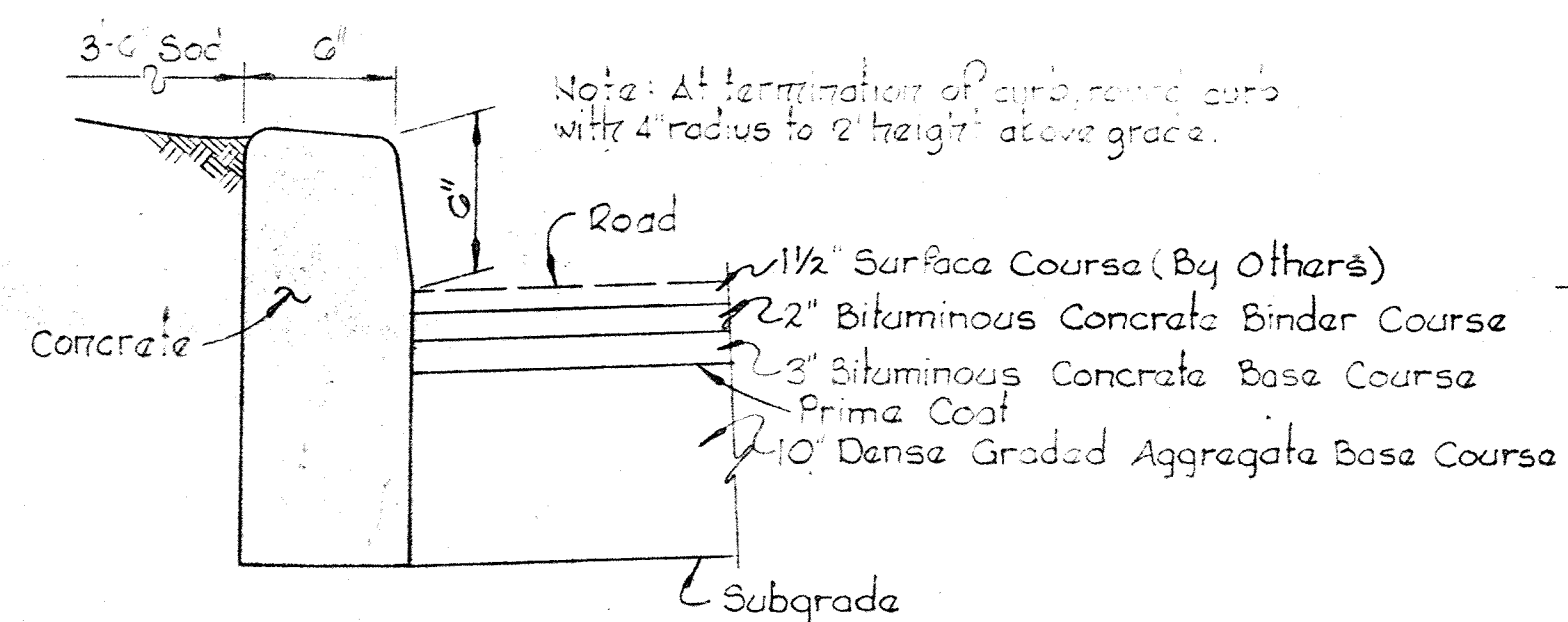 3'-6" Sod
6"
Note: At termination of curb, round curb
with 4" radius to 2" height above grade.
6"
Road
1 1/2" Surface Course (By Others)
2" Bituminous Concrete Binder Course
Concrete
3" Bituminous Concrete Base Course
Prime Coat
10" Dense Graded Aggregate Base Course
Subgrade